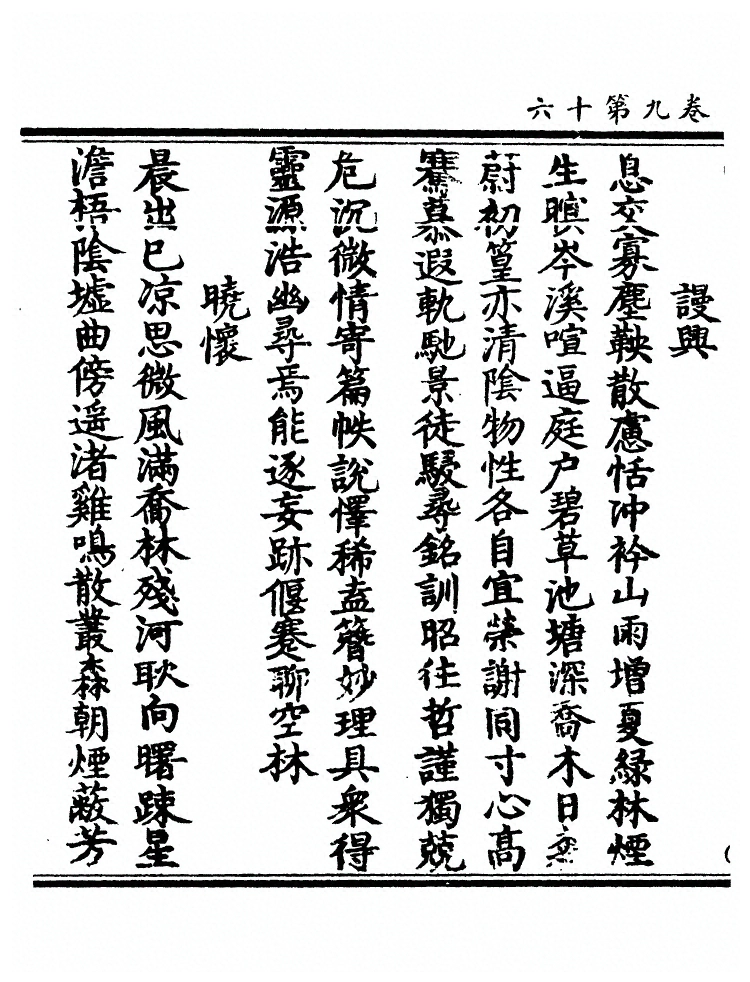 卷九第十六
謾興
息交寡塵鞅散慮恬冲衿山雨增夏綠林煙
生暝岑溪喧逼庭户碧草池塘深喬木日
蔚初篁亦清陰物性各自宜榮謝同寸心高
騫慕遐軌馳景徒駸尋銘訓昭往哲謹獨兢
危沉微情寄篇帙說懌稀盍簪妙理具衆得
靈源浩幽尋焉能逐妄跡偃蹇聊空林
曉懷
晨出已凉思微風滿喬林殘河耿向曙踈星
澹梧陰墟曲傍遥渚雞鳴散叢森朝煙蔽芳